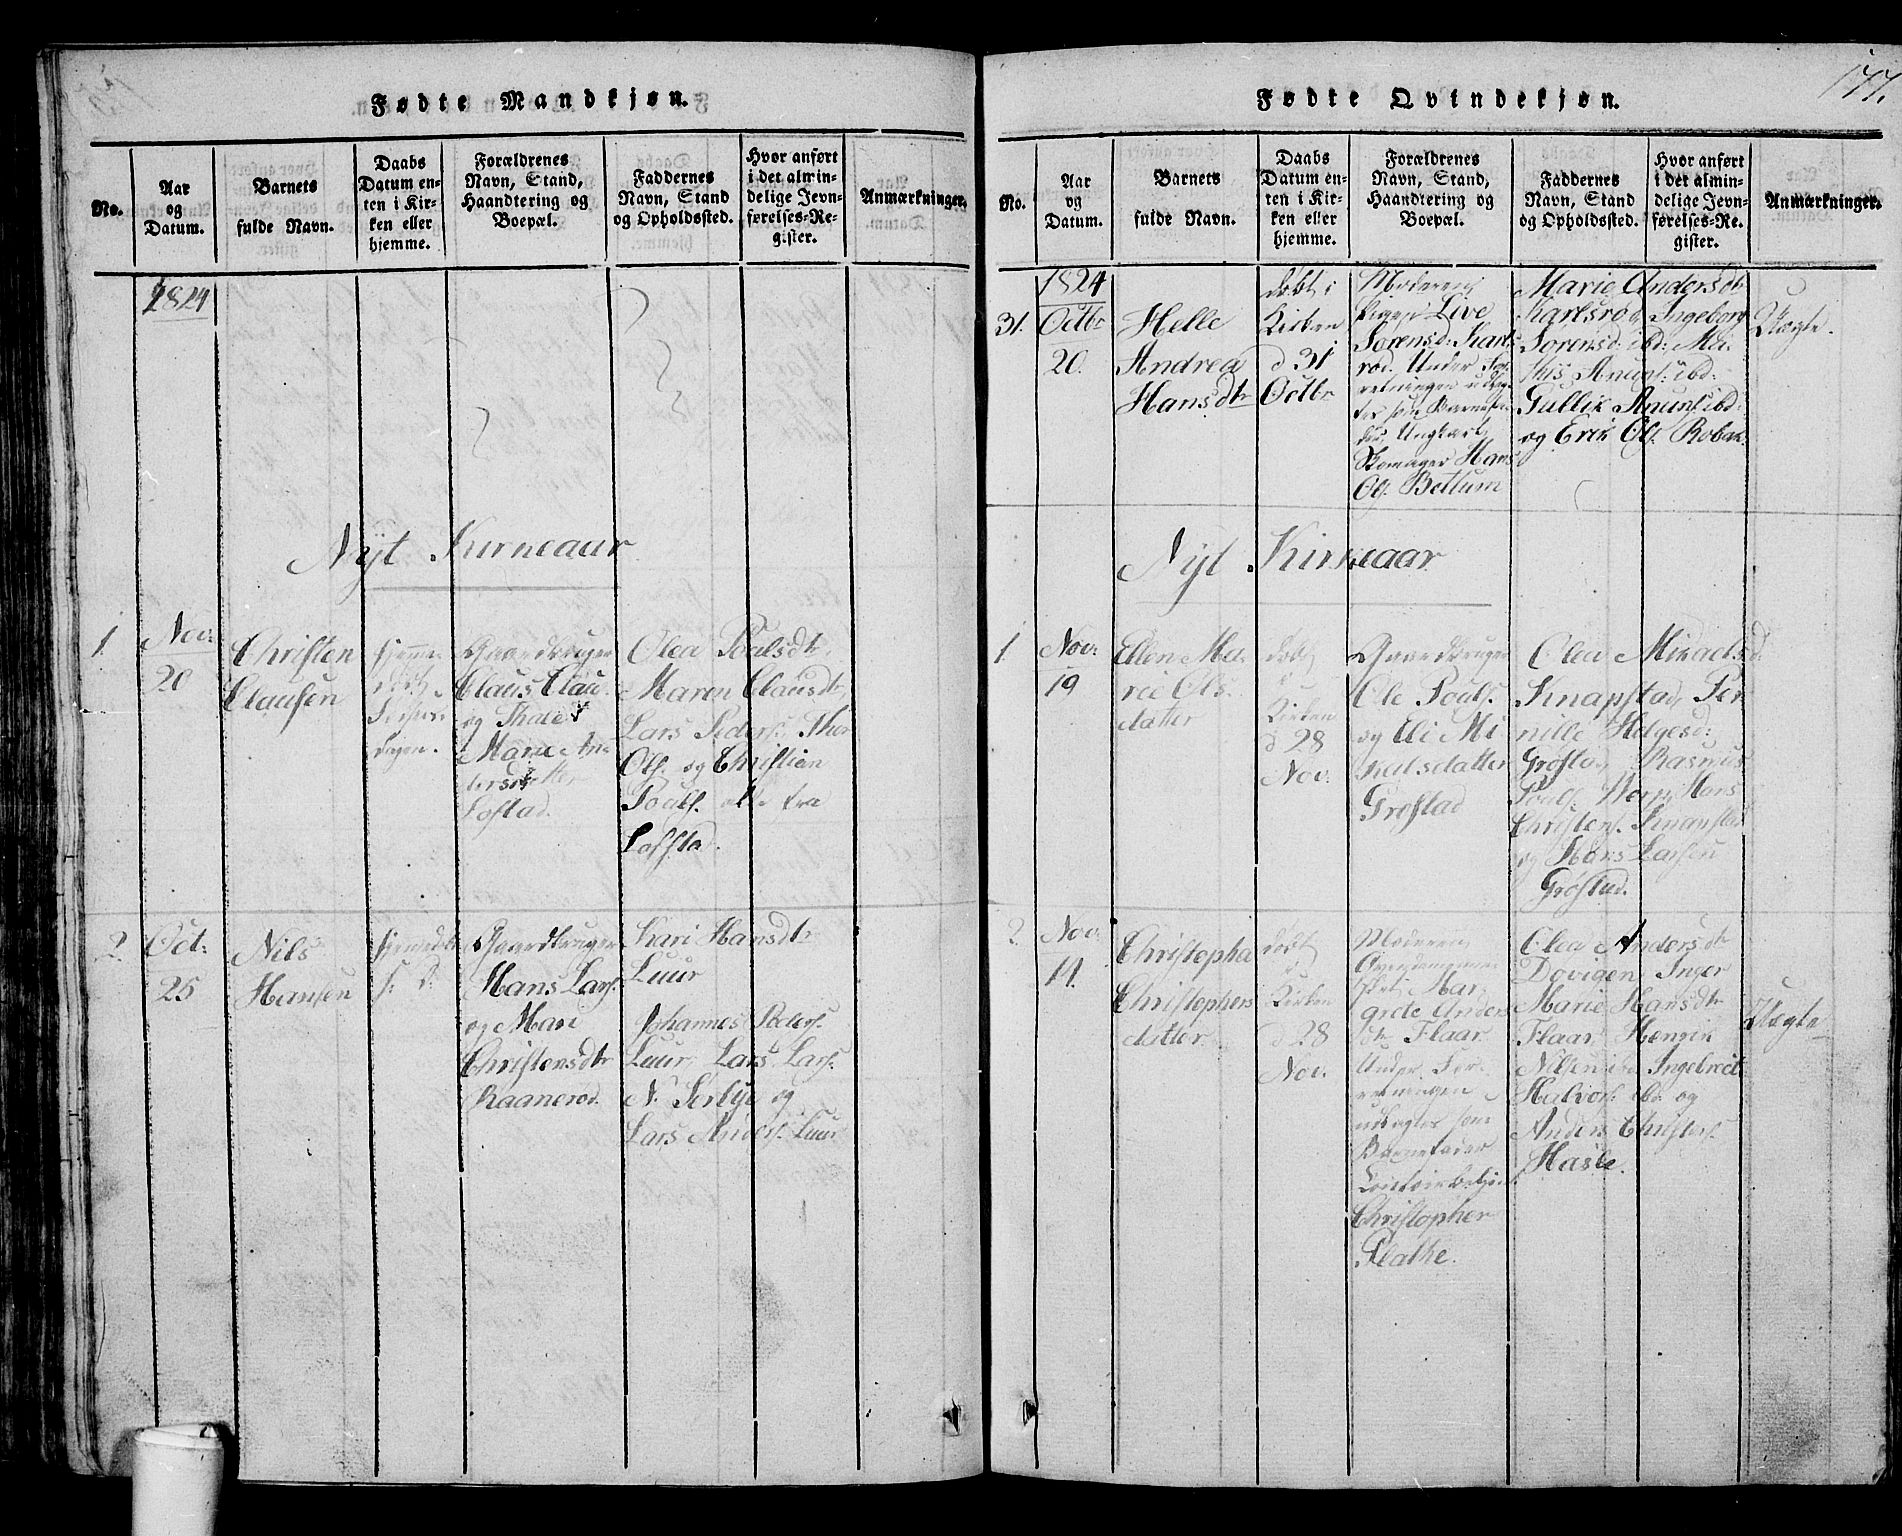 Fødte Mandkjøn.
No.
Aar
og
Datum.
Barnets
fulde Navn.
Daabs
Datum en-
ten i Kir-
ken eller
hjemme.
Forældrenes
Navn, Stand,
Haandtering og
Boepæl.
Faddernes
Navn, Stand
og Opholdssted.
Hvor anført
i det almin-
delige Jevn-
førelses-Re-
gister.
Anmærkninger.
1824
Nyt Kirneaar
1.
Nov.
20
Christen
Clausen
Hjemme
Gaardbruger
Claus Clau.
og Thale
Marie An
ders
Lofstad.
Olea Poulsdtr.
Maren Clausdtr,
Lars Peders., Thor
Ols. og Christian
Pouls. alle fra
Lofstad.
2.
Oct:
25
Nils
Hansen
Gaardbruger
Hans Lars.
og Mari
Christensdtr
Raanerød.
Kari Hansdtr
Luur
Johannes Peders.
Luur, Lars Lars.
N. Serbye og
Lars Anders. Luur
177.
Fødte Qvindekjøn.
No.
Aar
og
Datum.
Barnets
fulde Navn.
Daabs
Datum en-
ten i Kir-
ken eller
hjemme.
Forældrenes
Navn, Stand,
Haandtering og
Boepæl.
Faddernes
Navn, Stand
og Opholdssted.
Hvor anført
i det almin-
delige Jevn-
førelses-Re-
gister.
Anmærkninger.
31.
1824
Octbr
20.
Helle
Andrea
Hansdtr
døbt i
Kirken
d 31
Octbr
Moderen
Pigen Live
Sorensd: Karls
rød. Under For
retningen udlag
der som Barnefa
der, Ungkarl
Skomager Hans
Ols. Bettum
Marie Andersdtr
Karlsrød, Ingeborg
Sorensd: ibd: Ma.
this Anunds: ibd:
Gullik Anunds ibd:
og Erik Ols. Robak.
Uægte.
Nyt Kirkeaar
1.
Nov:
19
Ellen Ma.
rie Ols.
datter
døbt
i
Kirken
d 28
Nov.
Gaardbruger
Ole Pouls.
og Eli Mi
kalsdatter
Grøstad
Olea Mikaelsd:
Knapstad, Per
nille Helgesd:
Grøstad, Rasmus
Pouls. Hans
Christens. Knapstad
og Hans Larsen
Grøstad.
2.
Nov.
Christopha
Christophers
datter
døbt
i
Kirken
d 28
Nov.
Moderen
Mar
grete Anders
dtr Flaar
Under For
retningen
udlagtes som
Barnefader
Christopher
Flathe.
Olea Andersdtr
Dovigen Inger
Marie Hansdtr
Flaar,
Nilsen ibd Ingebrecht
Halvors. ibd og
Anders Christofs.
Hasle.
Uægte